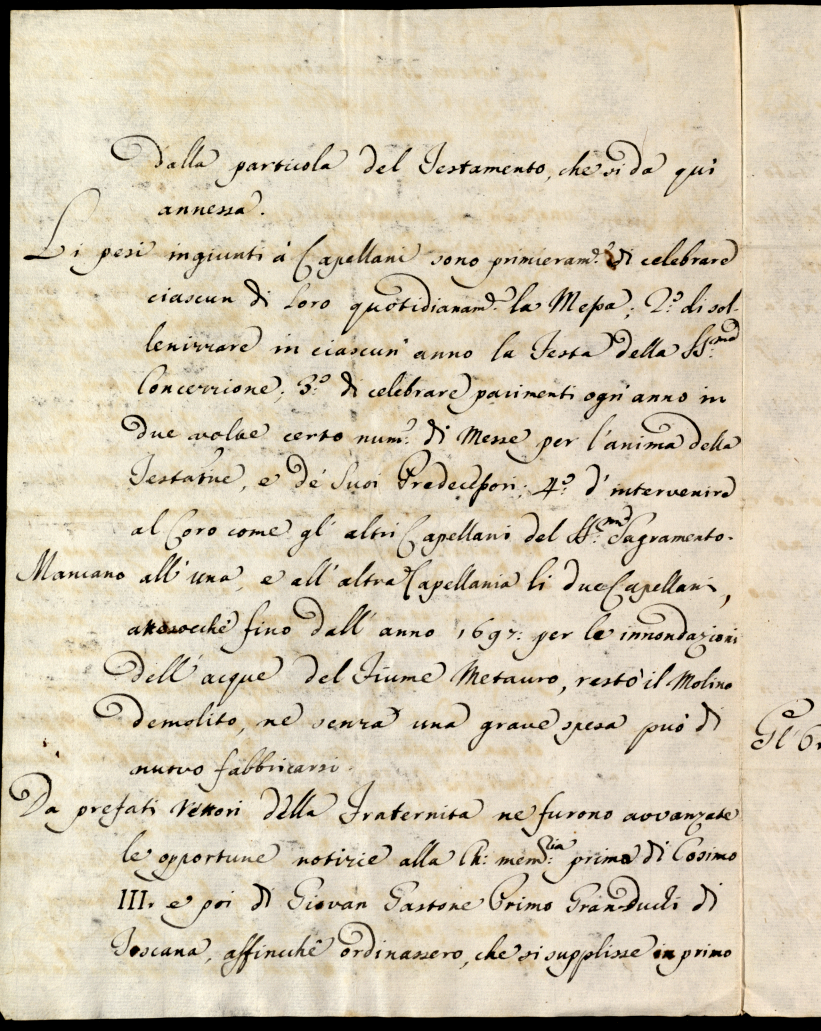 dalla particola del Testamento, che si da quì
annessa.
Li pesi ingiunti à Capellani sono primieram.e di celebrare
ciascun di Loro quotidianam.e la Messa; 2.o di sol-
lenizzare in ciascun' anno la Festa della SS.ma
Concezzione; 3.o di celebrare parimenti ogn'anno in
due volte certo num.o di Messe per l'anima della
Testatrice, e de' Suoi Predecessori; 4.o d'intervenire
al Coro come gl' altri Capellani del SS.mo Sagramento.
Mancano all' una, e all' altra Capellania li due Capellani,
attesocchè fino dall' anno 1697: per le innondazioni
dell' acque del Fiume Metauro, restò il Molino
demolito, ne senza una grave spesa può di
nuovo fabbricarsi.
Da prefati Rettori della Fraternita ne furono avvanzate
le opportune notizie alla Ch: mem:ria prima di Cosimo
III. e poi di Giovan Gastone Primo Gran-Duchi di
Toscana, affinchè ordinassero, che si supplisse in primo